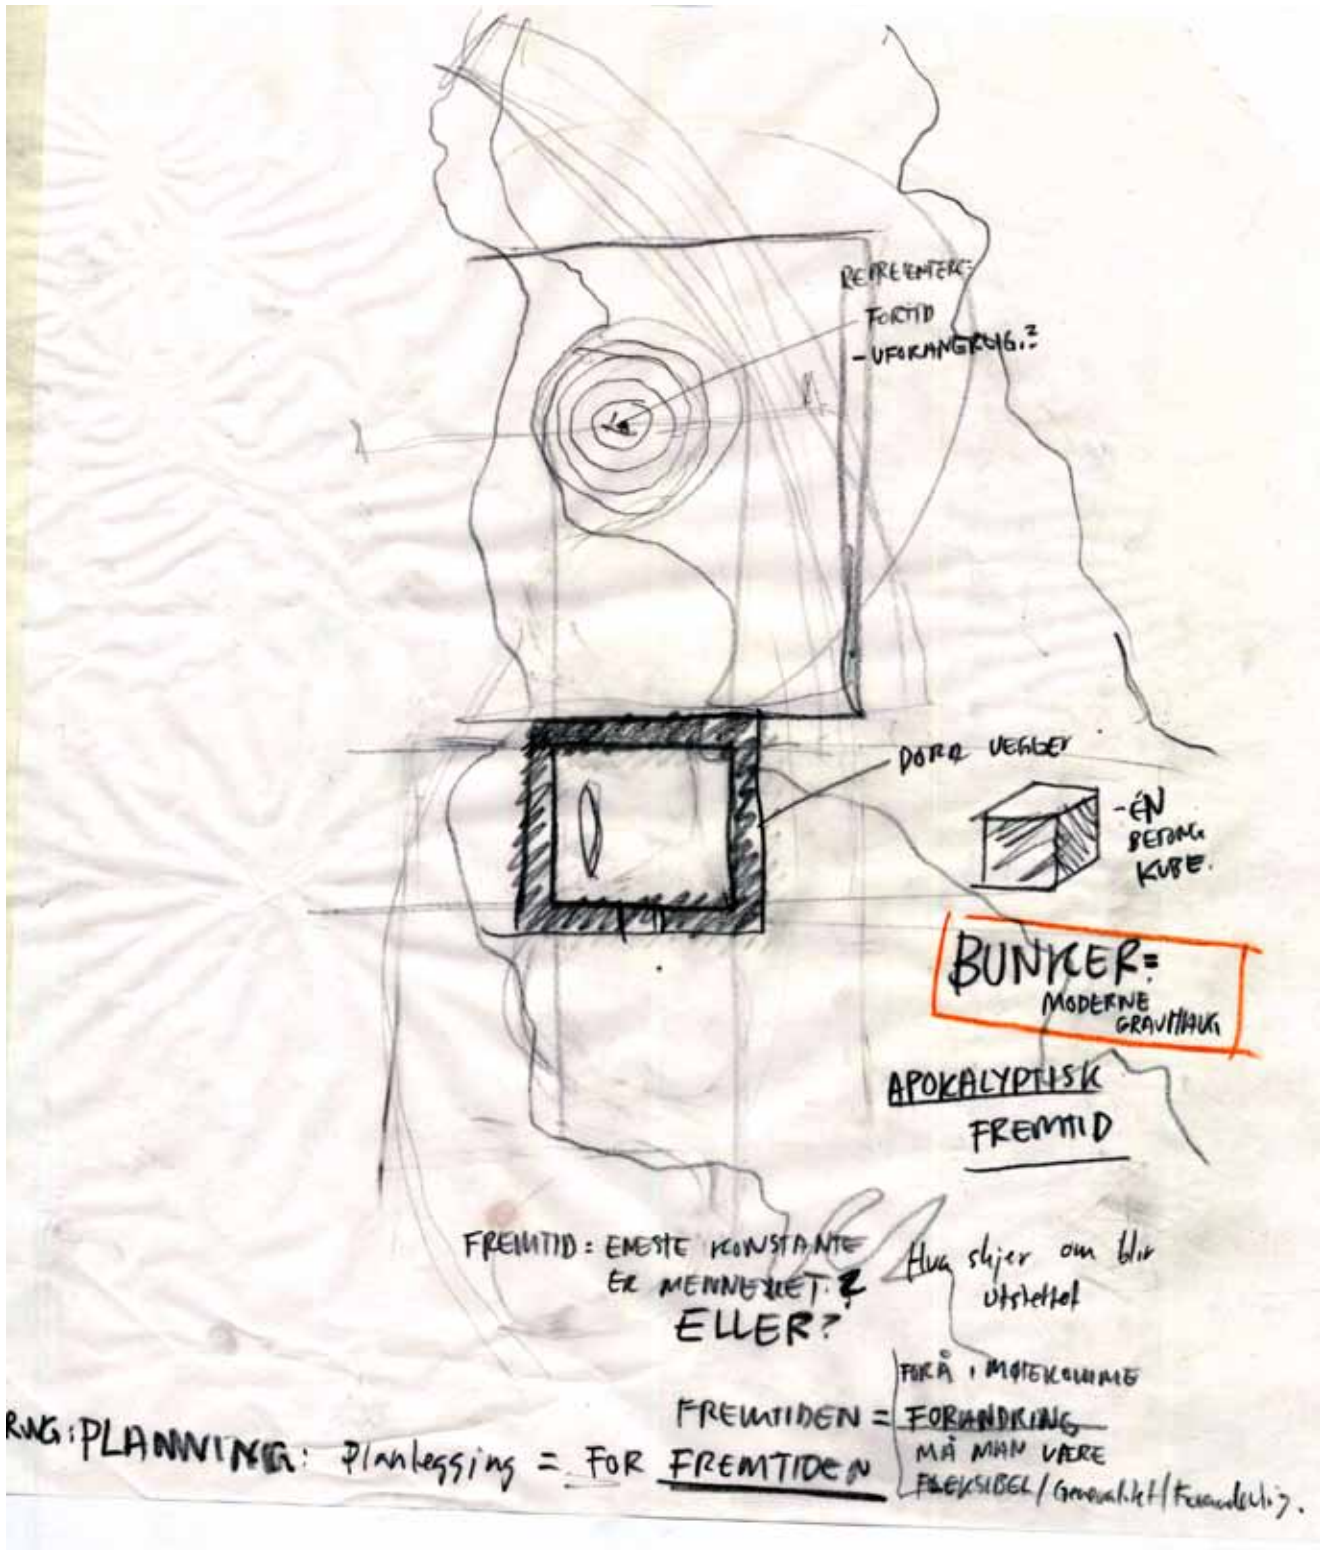 REPRESENTERE:
FORTID
- UFORANDERLIG.?
DOBLE VEGGER
- ÉN
BETONG
KUBE.
BUNKER =
MODERNE
GRAVHAUG
APOKALYPTISK
FREMTID
FREMTID: ENESTE KONSTANTE
ER MENNESKET.?
ELLER?
Hva skjer om blir
utslettet
FOR Å IMØTEKOMME
FREMTIDEN = FORANDRING
MÅ MAN VÆRE
FLEKSIBEL / Generalitet / Foranderlig.
RING: PLANNING: Planlegging = FOR FREMTIDEN